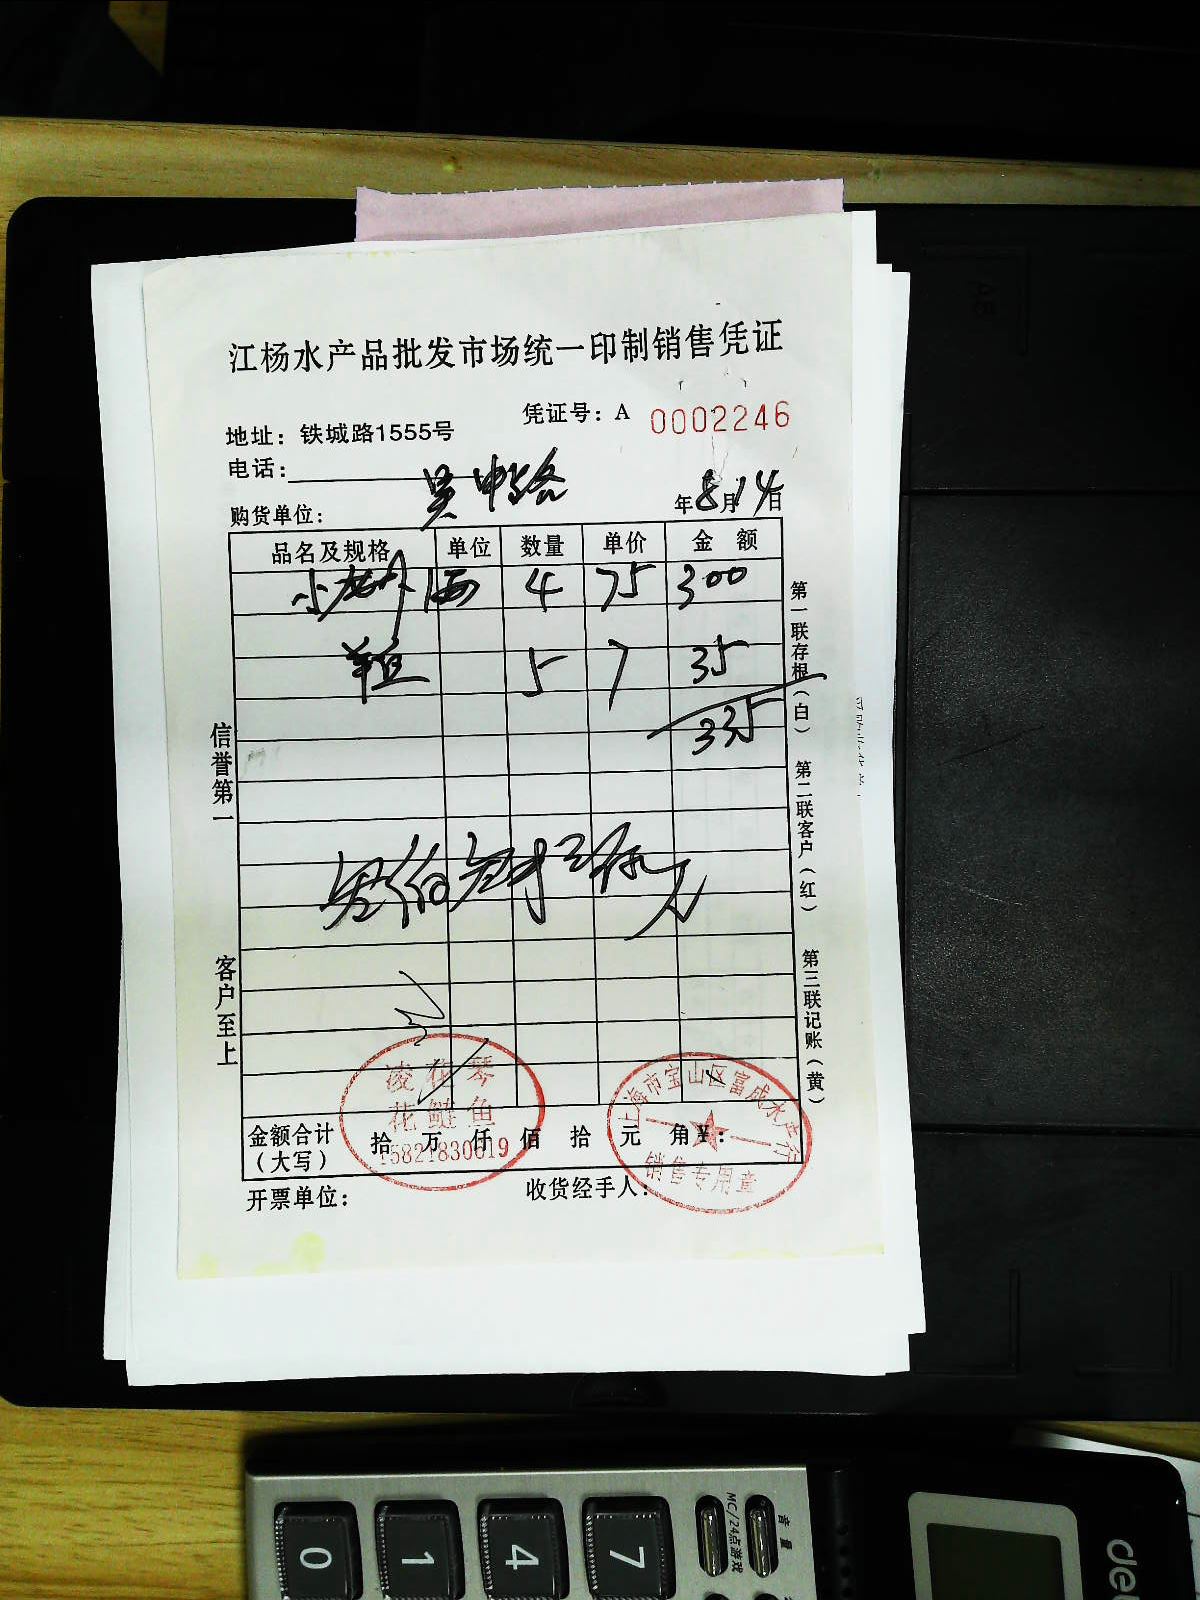 江杨水产品批发市场统一印制销售凭证
凭证号：A 0002246
地址：铁城路1555号
电话：
购货单位： 吴中路
年8月14日
品名及规格 单位 数量 单价 金额
4 75 300
5 7 35
335
信誉第一
客户至上
第一联存根（白）
第二联客户（红）
第三联记账（黄）
金额合计（大写） 拾 万 仟 佰 拾 元 角 ¥：
凌花琴
花鲢鱼
15821830619
上海市宝山区富成水产行
销售专用章
开票单位：
收货经手人：
音量
MC/24点游戏
0 1 4 7